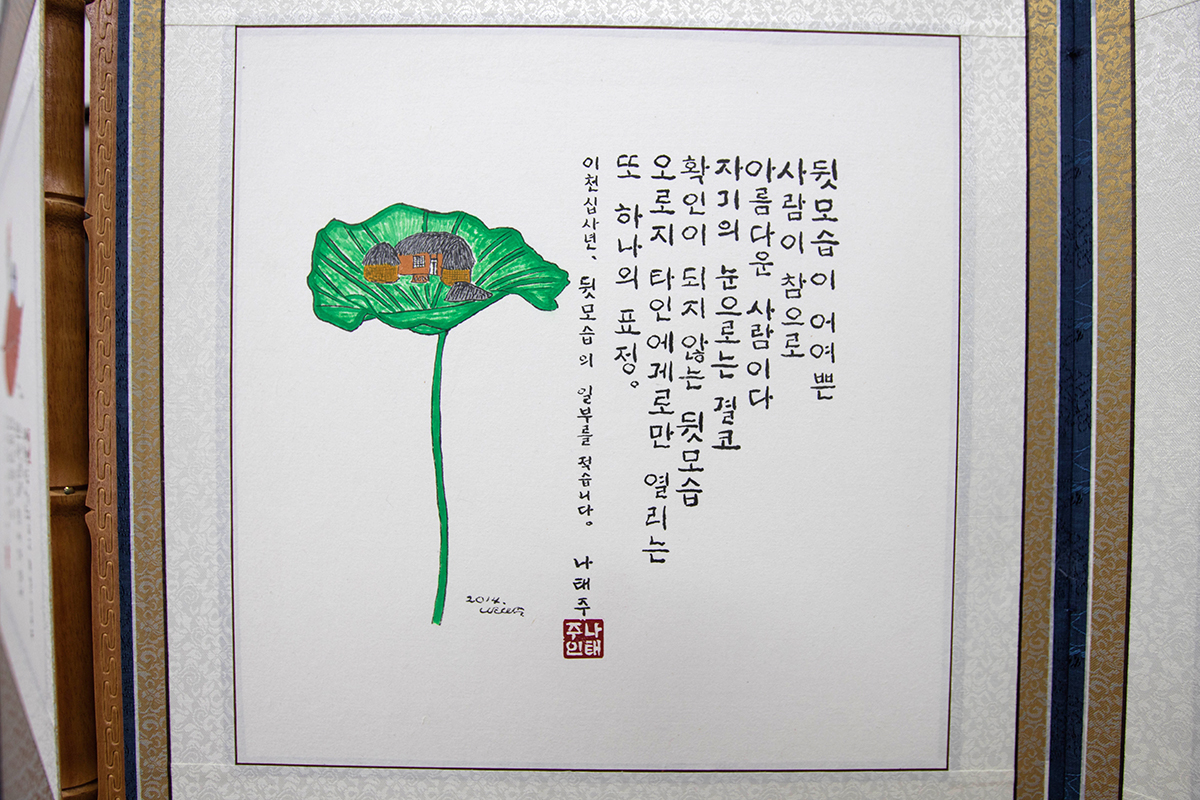 뒷모습이 어여쁜
사람이 참으로
아름다운 사람이다
자기의 눈으로는 결코
확인이 되지 않는 뒷모습
오로지 타인에게로만 열리는
또 하나의 표정。
이천십사년、 뒷모습의 일부를 적습니다。 나태주
나태주인
2014.